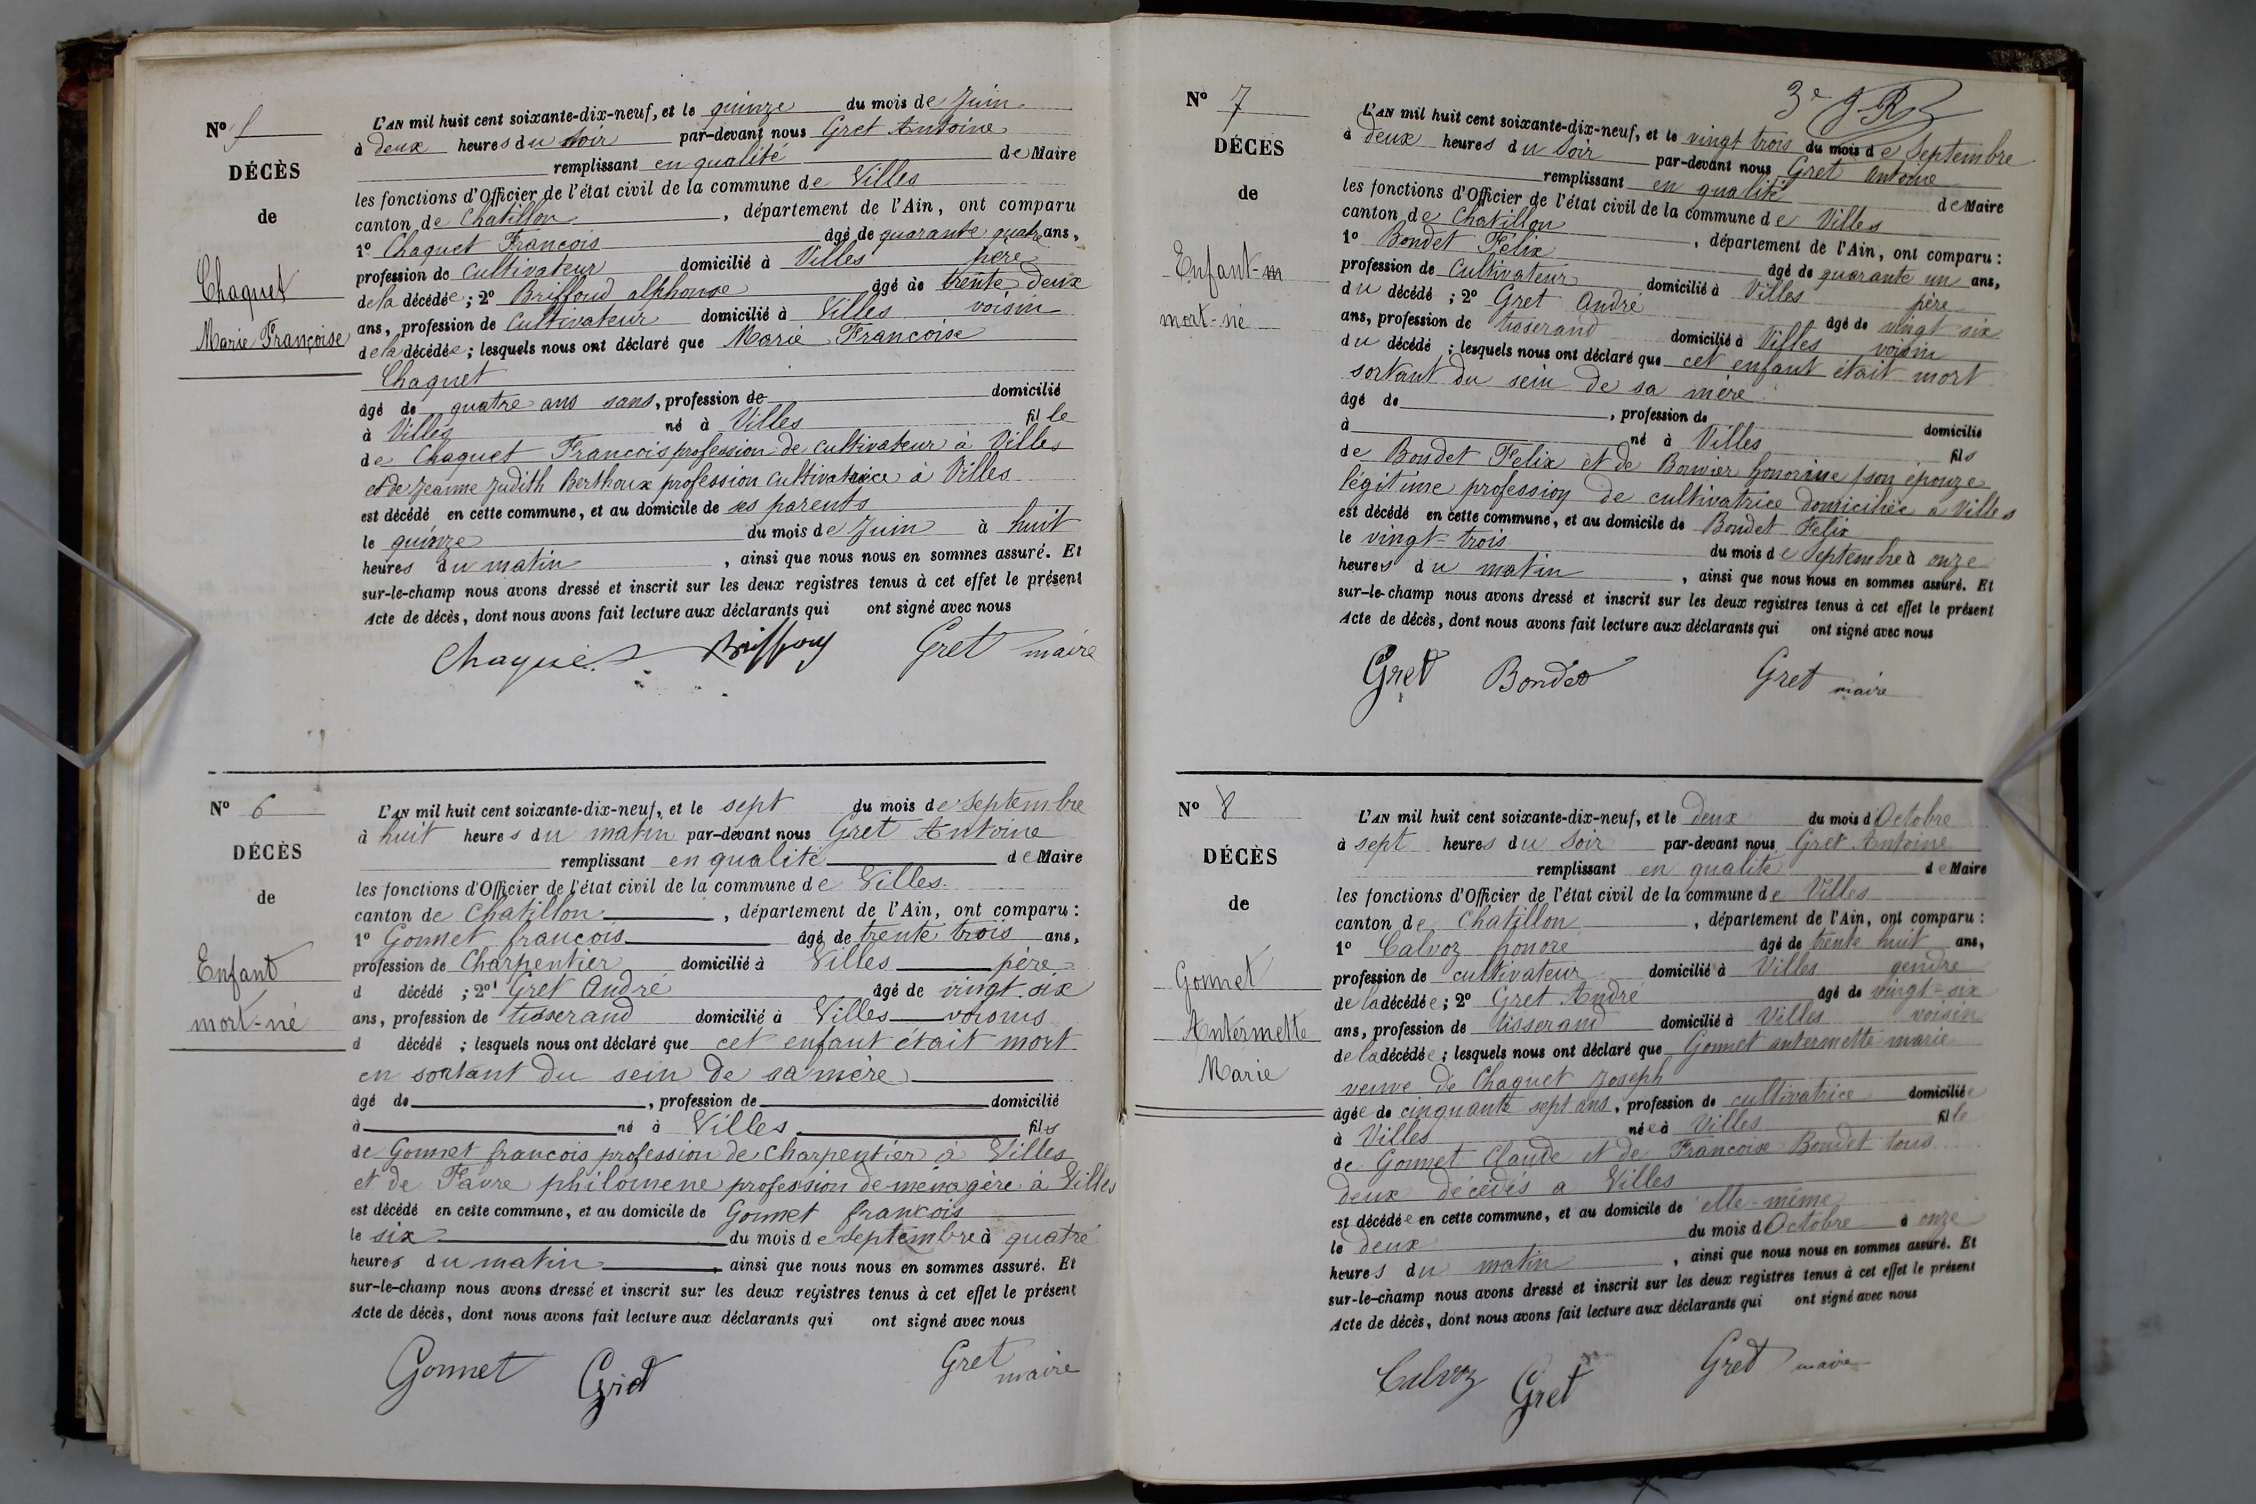 N° 5
DÉCÈS
de
Chaquet
Marie Françoise
L'AN mil huit cent soixante-dix-neuf, et le quinze du mois de Juin
à deux heures du soir par-devant nous Gret Antoine
remplissant en qualité de Maire
les fonctions d'Officier de l'état civil de la commune de Villes
canton de Chatillon, département de l'Ain, ont comparu
1° Chaquet Francois âgé de quarante quatre ans,
profession de cultivateur domicilié à Villes père
de la décédée ; 2° Briffoud alphonse âgé de trente deux
ans, profession de cultivateur domicilié à Villes voisin
de la décédée ; lesquels nous ont déclaré que Marie Francoise
Chaquet
âgé de quatre ans sans, profession de domicilié
à Villes né à Villes fille
de Chaquet Francois profession de cultivateur à Villes
et de Jeanne Judith Berthoux profession cultivatrice à Villes
est décédé en cette commune, et au domicile de ses parents
le quinze du mois de Juin à huit
heures du matin, ainsi que nous nous en sommes assuré. Et
sur-le-champ nous avons dressé et inscrit sur les deux registres tenus à cet effet le présent
Acte de décès, dont nous avons fait lecture aux déclarants qui ont signé avec nous
Chaquet Briffoud Gret maire
N° 6
DÉCÈS
de
Enfant
mort-né
L'AN mil huit cent soixante-dix-neuf, et le sept du mois de Septembre
à huit heures du matin par-devant nous Gret Antoine
remplissant en qualité de Maire
les fonctions d'Officier de l'état civil de la commune de Villes
canton de Chatillon, département de l'Ain, ont comparu :
1° Gonnet francois âgé de trente trois ans,
profession de Charpentier domicilié à Villes père
d décédé ; 2° Gret André âgé de vingt six
ans, profession de tisserand domicilié à Villes voisins
d décédé ; lesquels nous ont déclaré que cet enfant était mort
en sortant du sein de sa mère
âgé de, profession de domicilié
à né à Villes fils
de Gonnet francois profession de Charpentier à Villes
et de Favre philomene profession de ménagère à Villes
est décédé en cette commune, et au domicile de Gonnet francois
le six du mois de septembre à quatre
heures du matin, ainsi que nous nous en sommes assuré. Et
sur-le-champ nous avons dressé et inscrit sur les deux registres tenus à cet effet le présent
Acte de décès, dont nous avons fait lecture aux déclarants qui ont signé avec nous
Gonnet Gret Gret maire
3e
N° 7
DÉCÈS
de
Enfant-m
mort-né
L'AN mil huit cent soixante-dix-neuf, et le vingt trois du mois de Septembre
à deux heures du Soir par-devant nous Gret Antoine
remplissant en qualité de Maire
les fonctions d'Officier de l'état civil de la commune de Villes
canton de Chatillon, département de l'Ain, ont comparu :
1° Bondet Félix âgé de quarante un ans,
profession de cultivateur domicilié à Villes père
du décédé ; 2° Gret André âgé de vingt six
ans, profession de tisserand domicilié à Villes voisin
du décédé ; lesquels nous ont déclaré que cet enfant était mort
sortant du sein de sa mère
âgé de, profession de domicilié
à né à Villes fils
de Bondet Felix et de Bouvier honorine son épouze
légitime profession de cultivatrice domiciliée a Villes
est décédé en cette commune, et au domicile de Bondet Felix
le vingt-trois du mois de Septembre à onze
heures du matin, ainsi que nous nous en sommes assuré. Et
sur-le-champ nous avons dressé et inscrit sur les deux registres tenus à cet effet le présent
Acte de décès, dont nous avons fait lecture aux déclarants qui ont signé avec nous
Gret Bondet Gret maire
N° 8
DÉCÈS
de
Gonnet
Antermette
Marie
L'AN mil huit cent soixante-dix-neuf, et le deux du mois d'Octobre
à sept heures du Soir par-devant nous Gret Antoine
remplissant en qualité de Maire
les fonctions d'Officier de l'état civil de la commune de Villes
canton de Chatillon, département de l'Ain, ont comparu :
1° Calvoz honoré âgé de trente huit ans,
profession de cultivateur domicilié à Villes gendre
de la décédée ; 2° Gret André âgé de vingt-six
ans, profession de tisserand domicilié à Villes voisin
de la décédée ; lesquels nous ont déclaré que Gonnet antermette marie
veuve de Chaquet Joseph
âgée de cinquante sept ans, profession de cultivatrice domiciliée
à Villes née à Villes fille
de Gonnet Claude et de Francoise Bondet tous
deux décédés a Villes
est décédée en cette commune, et au domicile de elle-même
le deux du mois d'Octobre à onze
heures du matin, ainsi que nous nous en sommes assuré. Et
sur-le-champ nous avons dressé et inscrit sur les deux registres tenus à cet effet le présent
Acte de décès, dont nous avons fait lecture aux déclarants qui ont signé avec nous
Calvoz Gret Gret maire